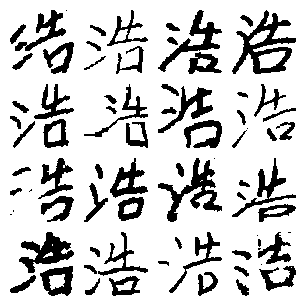 浩浩浩浩
浩浩浩浩
浩浩浩浩
浩浩浩浩